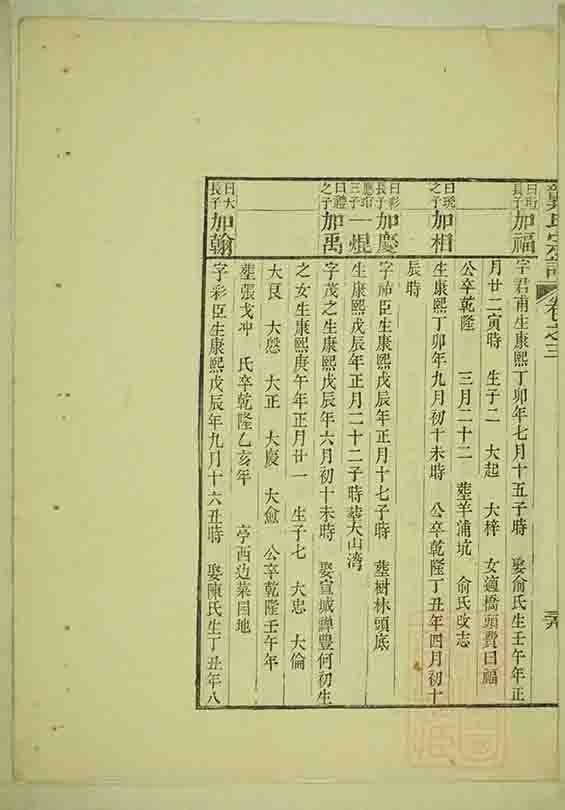 卷之三
三六
曰珩長子 加福 字君甫生康熙丁卯年七月十五子時 娶俞氏生壬午年正
月廿二寅時 生子二 大起 大梓 女適橋頭費曰福
公卒乾隆 三月二十二 塟羊浦坑 俞氏改志
曰珖之子 加相 生康熙丁卯年九月初十未時 公卒乾隆丁丑年四月初十
辰時
曰彩長子 加慶 字神臣生康熙戊辰年正月十七子時 塟樹林頭底
三子 一焜 生康熙戊辰年正月二十二子時塟大山湾
曰禮之子 加禹 字茂之生康熙戊辰年六月初十未時 娶宣城禪豐何初生
之女生康熙庚午年正月廿一 生子七 大忠 大倫
大良 大恕 大正 大慶 大愈 公卒乾隆壬午年
塟張戈冲 氏卒乾隆乙亥年 亭西边菜园地
曰大長子 加翰 字彩臣生康熙戊辰年九月十六丑時 娶陳氏生丁丑年八